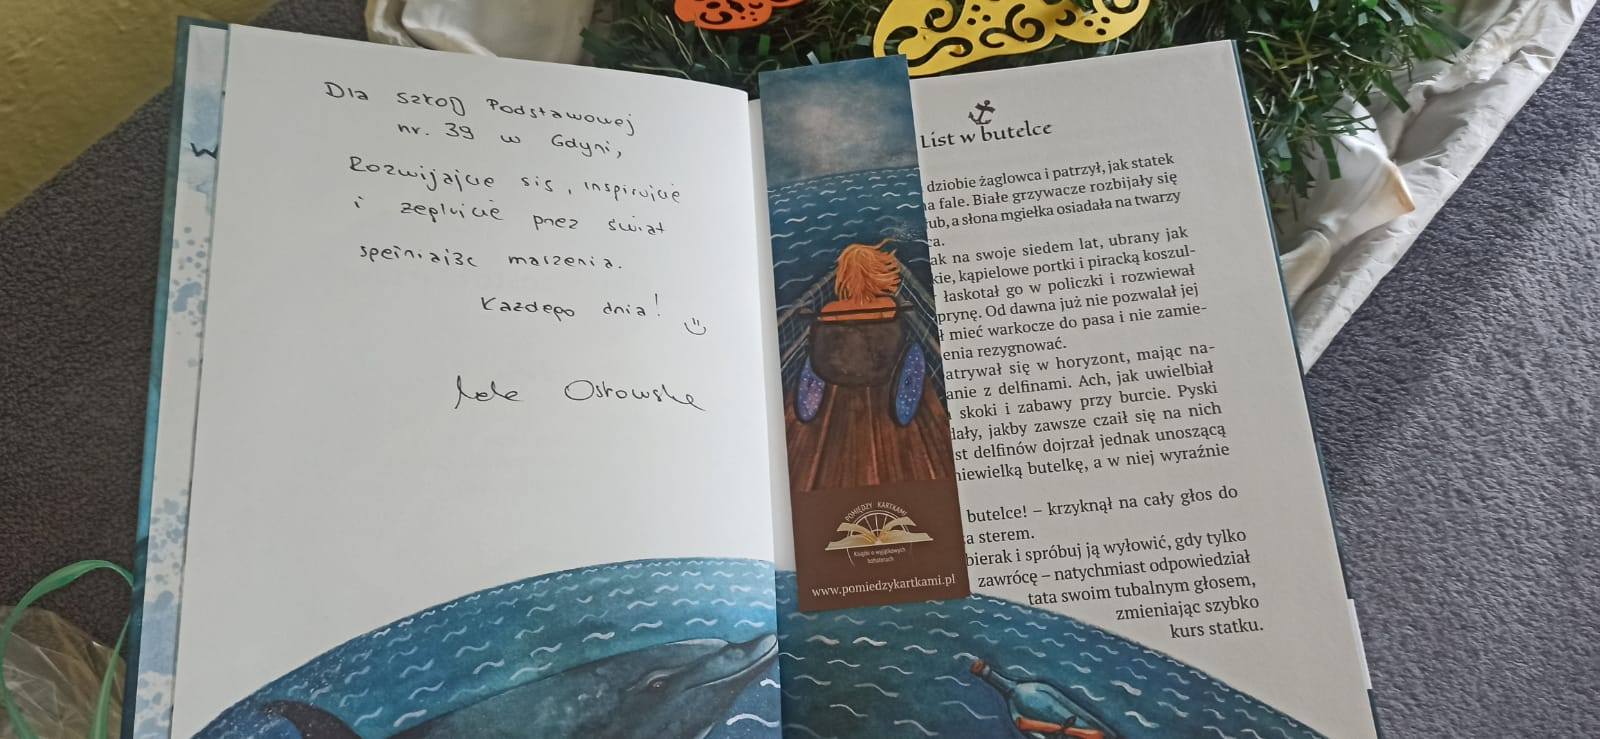 Dla Szkoły Podstawowej
nr. 39 w Gdyni,
Rozwijajcie się, inspirujcie
i żeglujcie przez świat
spełniając marzenia.
Każdego dnia!
Ostrowska
POMIĘDZY KARTKAMI
Książki o wyjątkowych
bohaterach
www.pomiedzykartkami.pl
List w butelce
dziobie żaglowca i patrzył, jak statek
a fale. Białe grzywacze rozbijały się
ub, a słona mgiełka osiadała na twarzy
ca.
ak na swoje siedem lat, ubrany jak
kie, kąpielowe portki i piracką koszul-
łaskotał go w policzki i rozwiewał
prynę. Od dawna już nie pozwalał jej
ł mieć warkocze do pasa i nie zamie-
enia rezygnować.
atrywał się w horyzont, mając na-
anie z delfinami. Ach, jak uwielbiał
skoki i zabawy przy burcie. Pyski
dały, jakby zawsze czaił się na nich
st delfinów dojrzał jednak unoszącą
niewielką butelkę, a w niej wyraźnie
butelce! – krzyknął na cały głos do
a sterem.
bierak i spróbuj ją wyłowić, gdy tylko
zawrócę – natychmiast odpowiedział
tata swoim tubalnym głosem,
zmieniając szybko
kurs statku.